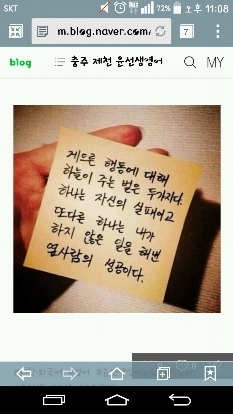 SKT 72% 오후 11:08
m.blog.naver.com/ 7
blog 충주 제천 윤선생영어 MY
게으른 행동에 대해
하늘이 주는 벌은 두가지다.
하나는 자신의 실패이고
또다른 하나는 내가
하지 않은 일을 해낸
옆사람의 성공이다.